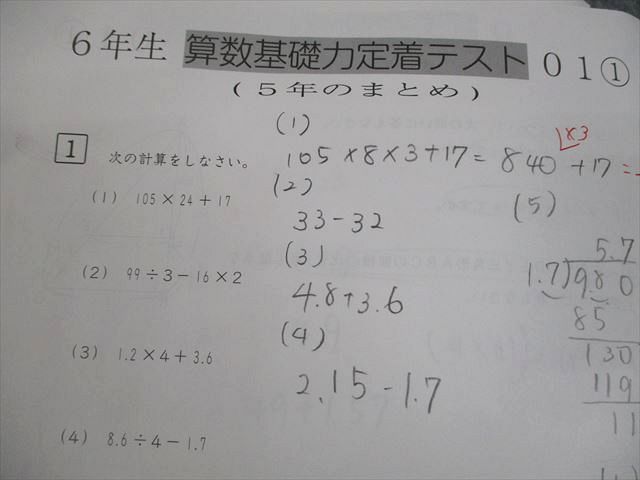 6年生 算数基礎力定着テスト 01①
(5年のまとめ)
1 次の計算をしなさい。
(1) 105×24+17
(2) 99÷3-16×2
(3) 1.2×4+3.6
(4) 8.6÷4-1.7
(1)
×3
105×8×3+17=840+17=
(2)
33-32
(3)
4.8+3.6
(4)
2.15-1.7
(5)
5.7
1.7)9.80
85
130
119
11